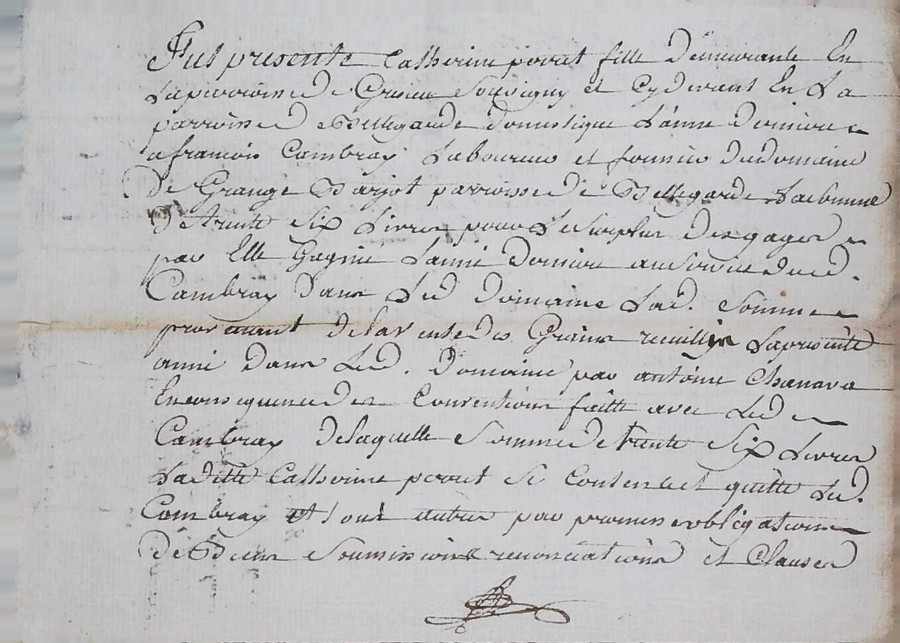 Fut presente Catherine perret fille Demeurante En
La perroisse De Grezieu Souvigny et Cydevant En La
parroisse De Bellegarde domestique L'anné Derniere
a francois Cambray Laboureur et fermier du domaine
De Grange parroisse De Bellegarde La Somme
De trente Six Livres pour Le Surplus Des gages
par Elle Gagnié L'anné Derniere au Service dud.
Cambray Dans Led Domaine Lad. Somme
provenant De la vente des Grains recuillis La presente
anné Dans Led. Domaine par antoine Chanava
En consequence des Conventions faitte avec Led
Cambray De laquelle Somme De trente Six Livres
Laditte Catherine perret Se Contente et quitte Led.
Cambray et tout autre par promesse obligations
De Biens Soumissions renonciations et Clauses